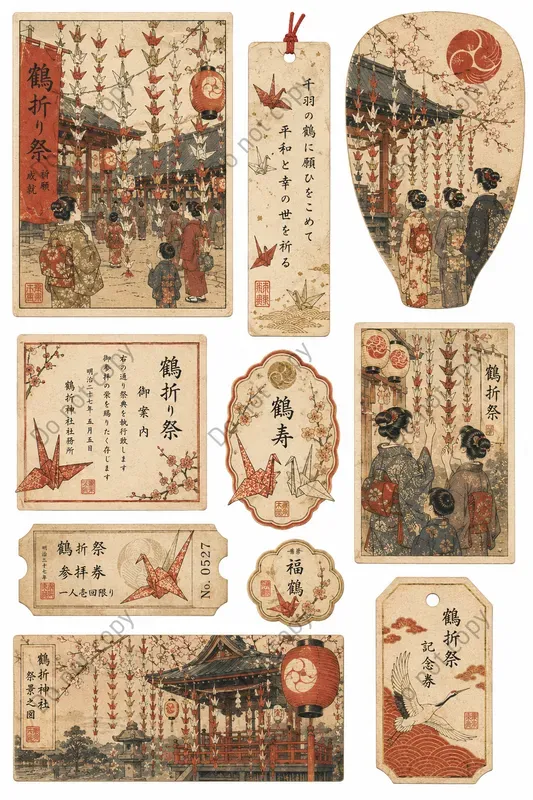 鶴折り祭
祈願
成就
千羽の鶴に願ひをこめて
平和と幸の世を祈る
鶴折り祭
御案内
右の通り祭典を執行致します
御参拝の栄を賜りたく存じます
明治二十七年 五月五日
鶴折神社社務所
鶴寿
鶴折祭
鶴折祭
参拝券
一人壱回限り
明治二十七年
No.0527
福鶴
鶴折祭
記念券
鶴折神社
祭景之図
Do not copy
Do not copy
Do not copy
Do not copy
Do not copy
Do not copy
Do not copy
Do not copy
Do not copy